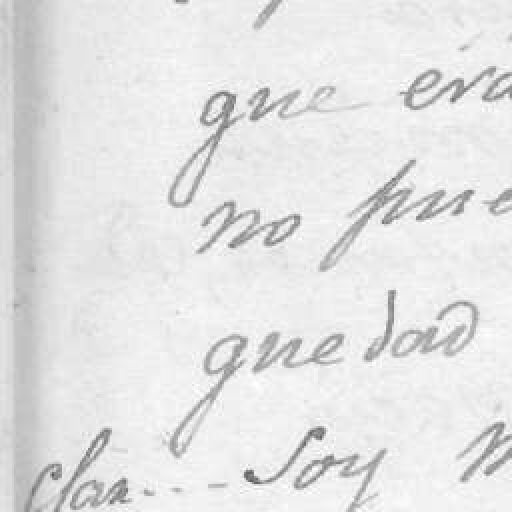 que éra
no pue
quedad
Clar... Soy